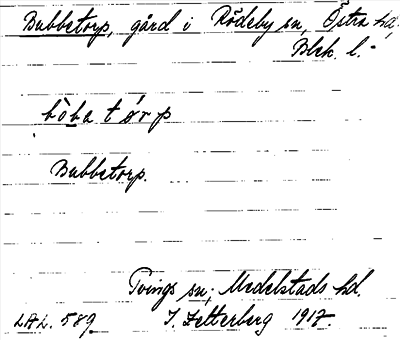 Bubbetorp, gård i Rödeby sn, Östra hd,
Blek. l.
bòba tórp
Bubbetorp.
Tvings sn, Medelstads hd.
LAL. 589 I. Zetterberg 1917.